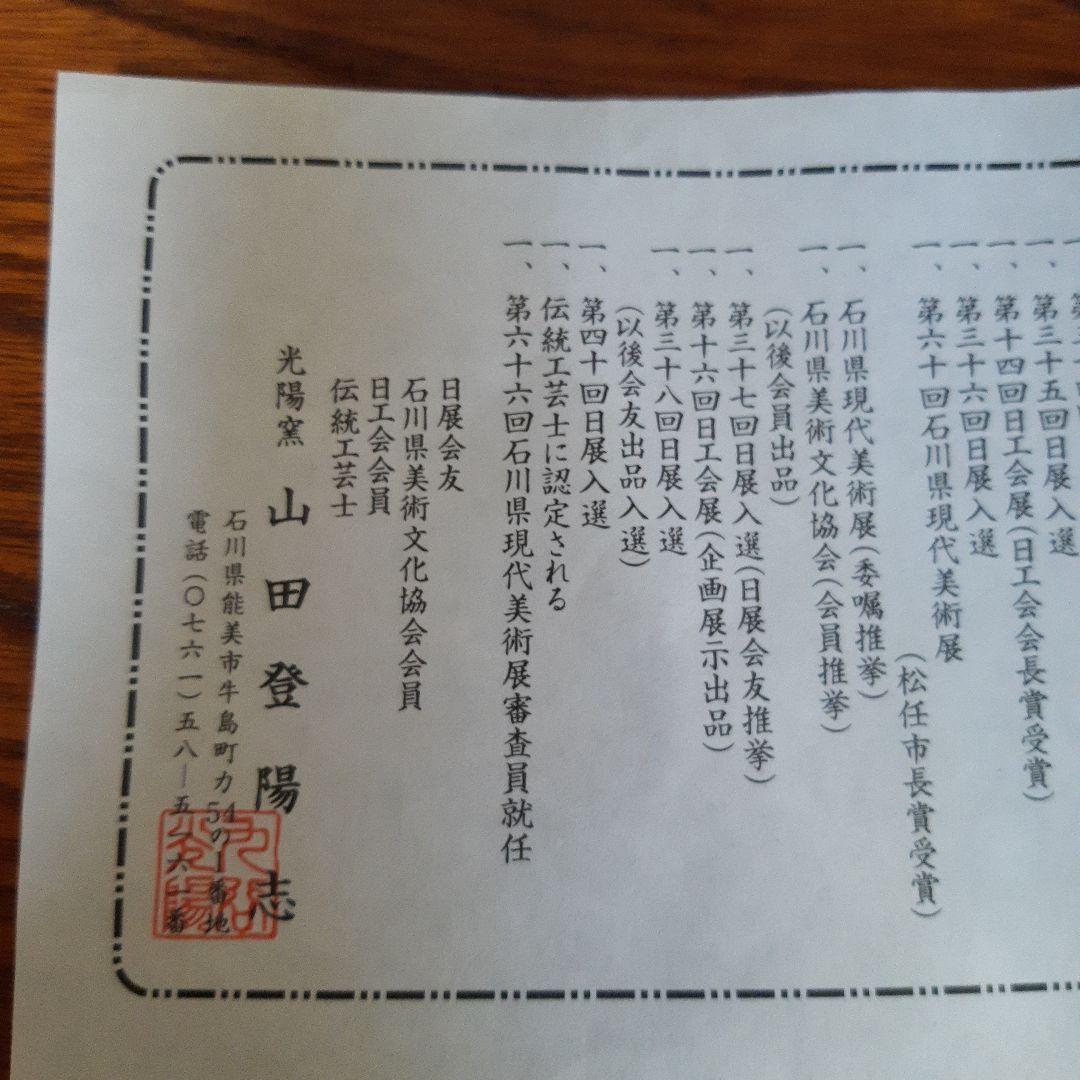 第三十五回日展入選
一、第十四回日工会展(日工会会長賞受賞)
一、第三十六回日展入選
一、第六十回石川県現代美術展
(松任市長賞受賞)
一、石川県現代美術展(委嘱推挙)
一、石川県美術文化協会(会員推挙)
(以後会員出品)
一、第三十七回日展入選(日展会友推挙)
一、第十六回日工会展(企画展示出品)
一、第三十八回日展入選
(以後会友出品入選)
一、第四十回日展入選
一、伝統工芸士に認定される
一、第六十六回石川県現代美術展審査員就任
日展会友
石川県美術文化協会会員
日工会会員
伝統工芸士
光陽窯 山田登陽志
石川県能美市牛島町カ54の1番地
電話(〇七六一)五八―五一六一番